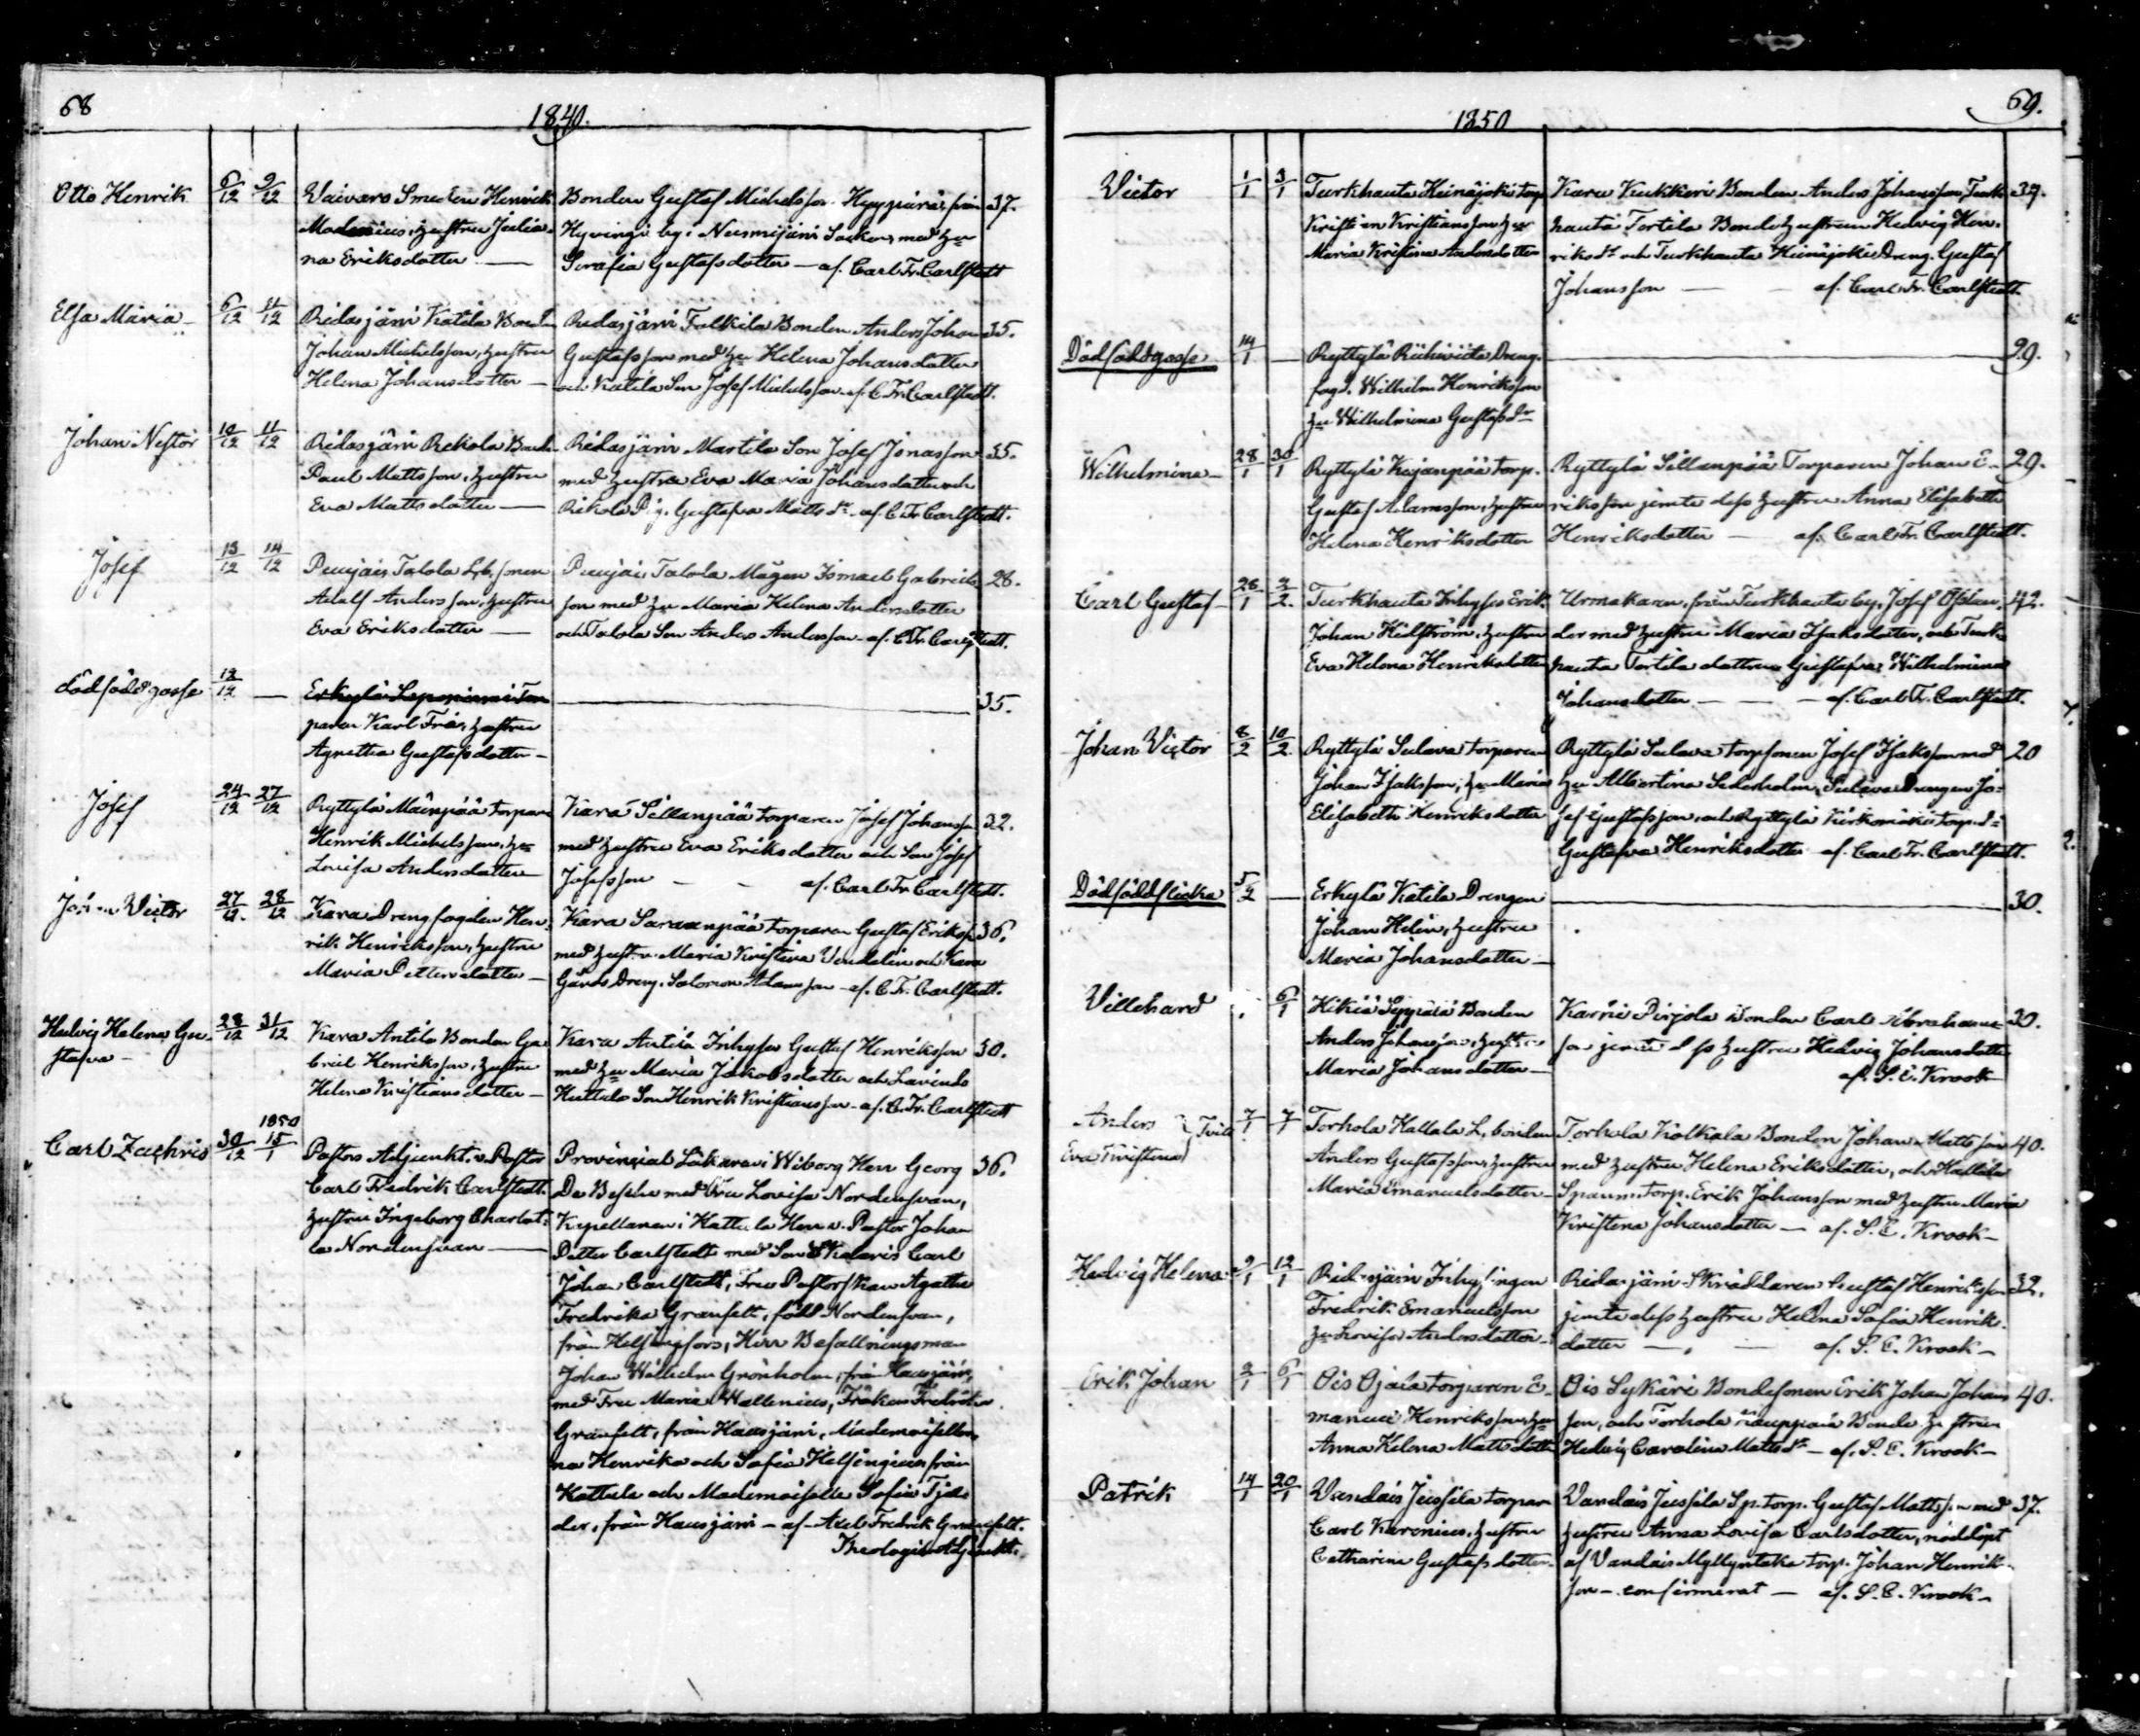 68
1849.
Otto Henrik 6/12 9/12 Waivaro Smeden Henrik Bonden Gustaf Michelsson Hyppiäräs från 37.
Modenius, hustru Julia- Hyvinge by i Nurmijärvi Socken, med hu
na Eriksdotter — Serafia Gustafsdotter — af. Carl Fr. Carlstedt
Elsa Maria 6/12 11/12 Ridasjärvi Katila Bonden Ridasjärvi Falkila Bonden Anders Johan 35.
Johan Michelsson, hustru Gustafsson med hu Helena Johansdotter
Helena Johansdotter — och Katila Son Josef Michelsson af. C. Fr. Carlstedt.
Johan Nestor 10/12 11/12 Ridasjärvi Rekola Bonde Ridasjärvi Martila Son Josef Jonasson 35.
Paul Mattsson, hustru med hustru Eva Maria Johansdotter och
Eva Mattsdotter — Rekola Pig. Gustafva Matts dr. af. C. Fr. Carlstedt.
Josef 13/12 14/12 Penjais Talola L.b. sonen Penjais Talola Mågen Ismael Gabriels 28.
Adolf Andersson, hustru son med hu Maria Helena Andersdotter
Eva Eriksdotter — och Talola Son Anders Andersson af. C. Fr. Carlstedt.
dödfödd gosse 12/12 — Erkylä Tor 35.
paren Karl Fris, hustru
Agnetha Gustafsdotter —
Josef 24/12 27/12 Ryttylä Mäenpää torpare Kara Sillanpää torparen Josef Johansson 32.
Henrik Michelsson, hu med hustru Eva Eriksdotter och Son Josef
Lovisa Andersdotter Josefsson — — af. Carl Fr. Carlstedt.
Johan Victor 27/12. 28/12 Kara Drengfogden Hen- Kara Saraanpää torparen Gustaf Eriksson 36.
rik Henriksson, hustru med hustru Maria Kristina Vendelin och Kara
Maria Pettersdotter — Gårds Dreng. Salomon Adamsson — af. C. Fr. Carlstedt.
Hedvig Helena Gu- 28/12 31/12 Kara Antila Bonden Ga- Kara Antila Inhyses Gustaf Henriksson 30.
stafva — briel Henriksson, hustru med hu Maria Jakobsdotter och Lavinto
Helena Kristiansdotter — Huttala Son Henrik Kristiansson — af. C. Fr. Carlstedt
1850
Carl Zachris 30/12 15/1 Pastors Adjunkt. v. Pastor Provincial Läkaren i Wiborg Herr Georg 36.
Carl Fredrik Carlstedt. De Besche med Fru Lovisa Nordensvan,
hustru Ingeborg Charlot- Kapellanen i Hattula Herr v. Pastor Johan
ta Nordensvan — Petter Carlstedt med Son Skolaris Carl
Johan Carlstedt, Fru Pastorskan Agatha
Fredrika Granfelt, född Nordensvan,
från Helsingfors, Herr Befallningsman
Johan Wilhelm Grönholm, från Hausjärvi,
med Fru Maria Wallenius, Fröken Fredrika
Granfelt, från Hausjärvi, Mademoiseller-
na Henrika och Sofia Helsingius från
Hattula och Mademoiselle Sofia Tjäder,
der, från Hausjärvi — af. Axel Fredrik Granfelt.
Theologie Adjunkt.
69.
1850
Victor 1/1 3/1 Turkhauta Heinäjoki torp Kara Kukkari Bonden Anders Johansson, Turk- 39.
Kristian Kristiansson hu hauta Tortila Bonde hustrun Hedvig Hen-
Maria Kristina Andersdotter riks dr och Turkhauta Heinäjoki Dreng. Gustaf
Johansson — — af. Carl Fr. Carlstedt.
Dödfödd gosse 14/1 — Ryttylä Dreng. 29.
fogd. Wilhelm Henriksson
hu Wilhelmina Gustafs dr
Wilhelmina 28/1 30/1 Ryttylä Kujanpää torp. Ryttylä Sillanpää Torparen Johan E- 29.
Gustaf Adamsson, hustru riksson jemte dess hustru Anna Elisabeth
Helena Henriksdotter Henriksdotter — af. Carl Fr. Carlstedt.
Carl Gustaf 28/1 2/2. Turkhauta Inhyses Erik Urmakaren, från Turkhauta by, Josef Öhlan- 42.
Johan Helström, hustru der med hustru Maria Isaksdotter, och Turk-
Eva Helena Henriksdotter hauta Tortila dottren Gustafva Wilhelmina
Johansdotter — — af. Carl Fr. Carlstedt.
Johan Victor 8/2 10/2. Ryttylä Sulava torparen Ryttylä Sulava torpsonen Josef Isaksson med 20
Johan Isaksson, hu Maria hu Albertina Sederholm, Sulava Drengen Jo-
Elisabeth Henriksdotter sef Gustafsson, och Ryttylä Kirkomäki torp.d:
Gustafva Henriksdotter af. Carl Fr. Carlstedt.
Dödfödd flicka 5/2 — Erkylä Katila Drengen 30.
Johan Helin, hustru
Maria Johansdotter —
Villehard 6/1 Hikiä Seppälä Bonden Karris Pirjola Bonden Carl Abrahams- 30.
Anders Johansson, hustru son jemte dess hustru Hedvig Johansdotter
Maria Johansdotter — af. S. E. Krook —
Anders } Tvill 7/1 7/1 Torhola Hallala L. bonden Torhola Kolkala Bonden Johan Mattsson 40.
Eva Kristina Anders Gustafsson, hustru med hustru Helena Eriksdotter, och Hallala
Maria Emanuelsdotter — Spanm. torp. Erik Johansson med hustru Maria
Kristina Johansdotter — af. S. E. Krook —
Hedvig Helena 9/1 12/1 Ridasjärvi Inhysingen Ridasjärvi Skräddaren Gustaf Henriksson 32.
Fredrik Emanuelsson jemte dess hustru Helena Sofia Henriks-
hu Lovisa Andersdotter — dotter — — af. S. E. Krook —
Erik Johan 2/1 6/1 Ois Ojala torparen E- Ois Sykäri Bondesonen Erik Johan Johans- 40.
manuel Henriksson, hu son, och Torhola Bonde hustrun
Anna Helena Mattsdotter Hedvig Carolina Matts dr — af. S. E. Krook —
Patrik 14/1 20/1 Vandais Jussila torpar Vandais Jussila Sp. torp. Gustaf Mattsson med 37.
Carl Karenius, hustru hustru Anna Lovisa Carlsdotter, nöddöpt
Catharina Gustafsdotter. af Vandais torp. Johan Henrik-
son — confirmerat — af. S. E. Krook —